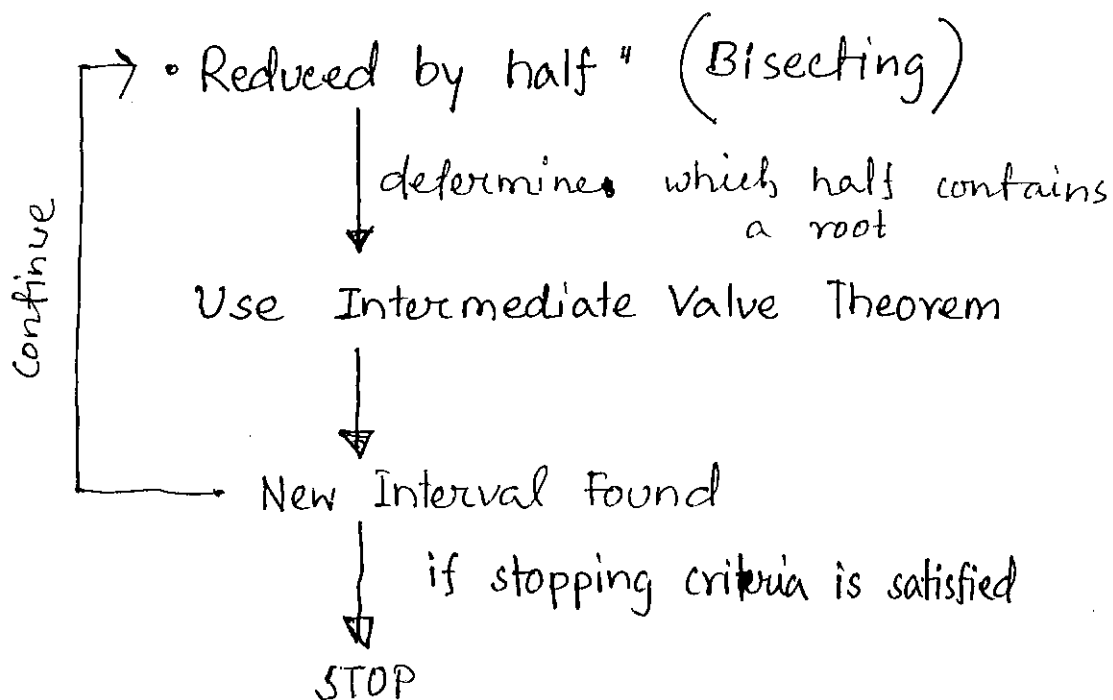 • Reduced by half " (Bisecting)
determine which half contains
a root
Use Intermediate Value Theorem
Continue
New Interval Found
if stopping criteria is satisfied
STOP